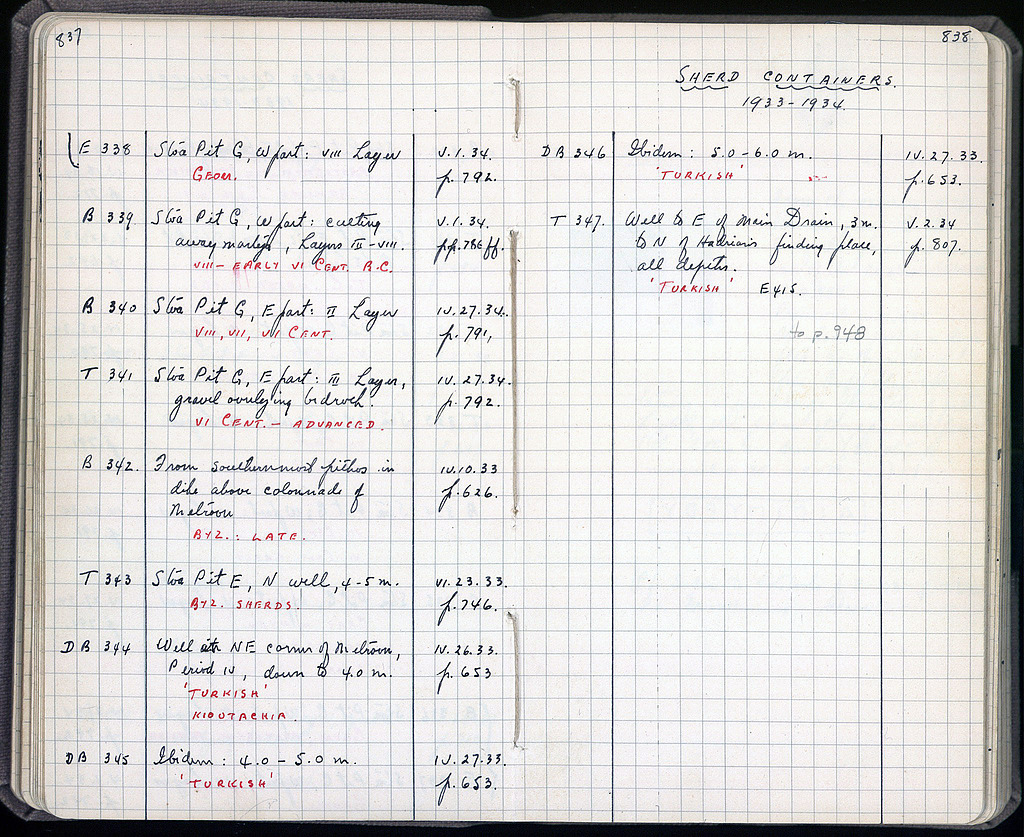 837
E 338 Stoa Pit G, W part: VIII Layer V.1.34.
GEOM. p. 792.
B 339 Stoa Pit G, W part: cutting V.1.34.
away martyr, Layers II - VIII. pp. 786 ff.
VIII - EARLY VI CENT. B.C.
B 340 Stoa Pit G, E part: II Layer IV.27.34.
VIII, VII, VI CENT. p. 791,
T 341 Stoa Pit G, E part: III Layer, IV.27.34.
gravel overlying bedrock. p. 792.
VI CENT. - ADVANCED.
B 342. From southernmost pithos in IV.10.33
dike above colonnade of p. 626.
Metroon
BYZ.: LATE.
T 343 Stoa Pit E, N well, 4-5 m. VI.23.33.
BYZ. SHERDS. p. 746.
DB 344 Well at NE corner of Metroon, IV.26.33.
Period IV, down to 4.0 m. p. 653
'TURKISH'
KIOUTACHIA.
DB 345 Ibidem: 4.0 - 5.0 m. IV.27.33.
'TURKISH' p. 653.
838
SHERD CONTAINERS.
1933-1934.
DB 346 Ibidem: 5.0-6.0 m. IV.27.33.
'TURKISH' p. 653.
T 347. Well to E of Main Drain, 3 m. V.2.34
to N of Hadrian's finding place, p. 807.
all depths.
'TURKISH' E415.
to p. 948